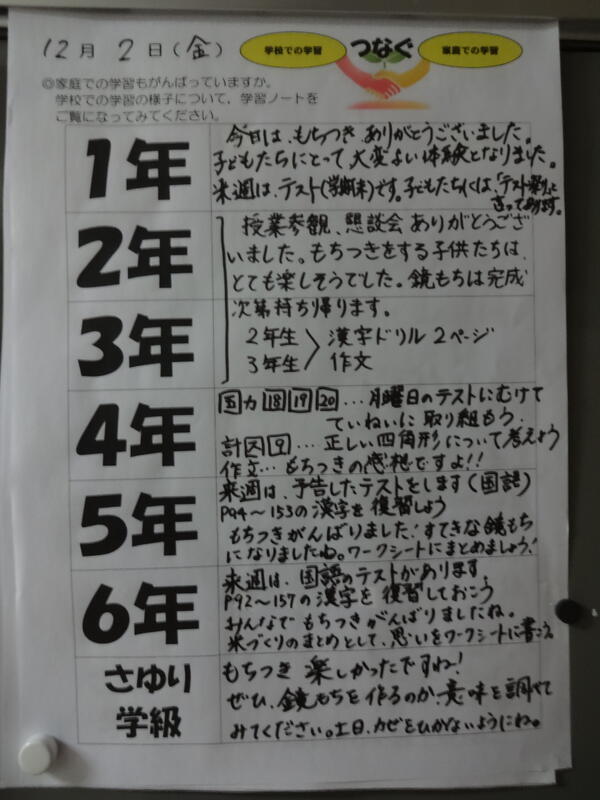 12月 2日(金)
学校での学習 つなぐ 家庭での学習
◎家庭での学習もがんばっていますか。
学校での学習の様子について、学習ノートを
ご覧になってみてください。
1年
今日は、もちつき ありがとうございました。
子どもたちにとって 大変よい体験となりました。
来週は、テスト(学期末)です。子どもたちには、「テスト祭り」と
言ってあります。
2年
3年
授業参観、懇談会 ありがとうござ
いました。もちつきをする子供たちは、
とても楽しそうでした。鏡もちは完成
次第持ち帰ります。
2年生 〉漢字ドリル 2ページ
3年生 作文
4年
国力 18 19 20 … 月曜日のテストにむけて
ていねいに取り組もう.
計 … 正しい四角形について考えよう
作文… もちつきの感想ですよ!!
5年
来週は、予告したテストをします(国語)
P94〜153の漢字を復習しよう
もちつきがんばりました!すてきな鏡もち
になりましたね。ワークシートにまとめましょう!
6年
来週は、国語のテストがあります。
P92〜157の漢字を復習しておこう
みんなで もちつきがんばりましたね。
米づくりのまとめとして、思いをワークシートに書こう
さゆり
学級
もちつき 楽しかったですね!
ぜひ、鏡もちを作るのか、意味を調べて
みてください。土日、カゼをひかないようにね。